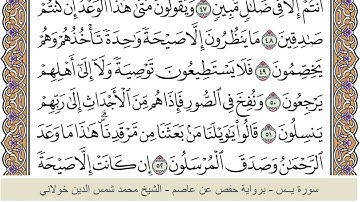 أَنتُمْ إِلَّا فِى ضَلَٰلٍ مُّبِينٍ ٤٧ وَيَقُولُونَ مَتَىٰ هَٰذَا ٱلْوَعْدُ إِن كُنتُمْ
صَٰدِقِينَ ٤٨ مَا يَنظُرُونَ إِلَّا صَيْحَةً وَٰحِدَةً تَأْخُذُهُمْ وَهُمْ
يَخِصِّمُونَ ٤٩ فَلَا يَسْتَطِيعُونَ تَوْصِيَةً وَلَآ إِلَىٰٓ أَهْلِهِمْ
يَرْجِعُونَ ٥٠ وَنُفِخَ فِى ٱلصُّورِ فَإِذَا هُم مِّنَ ٱلْأَجْدَاثِ إِلَىٰ رَبِّهِمْ
يَنسِلُونَ ٥١ قَالُوا۟ يَٰوَيْلَنَا مَنۢ بَعَثَنَا مِن مَّرْقَدِنَا ۗ هَٰذَا مَا وَعَدَ
ٱلرَّحْمَٰنُ وَصَدَقَ ٱلْمُرْسَلُونَ ٥٢ إِن كَانَتْ إِلَّا صَيْحَةً
سورة يــس - برواية حفص عن عاصم - الشيخ محمد شمس الدين خولاني